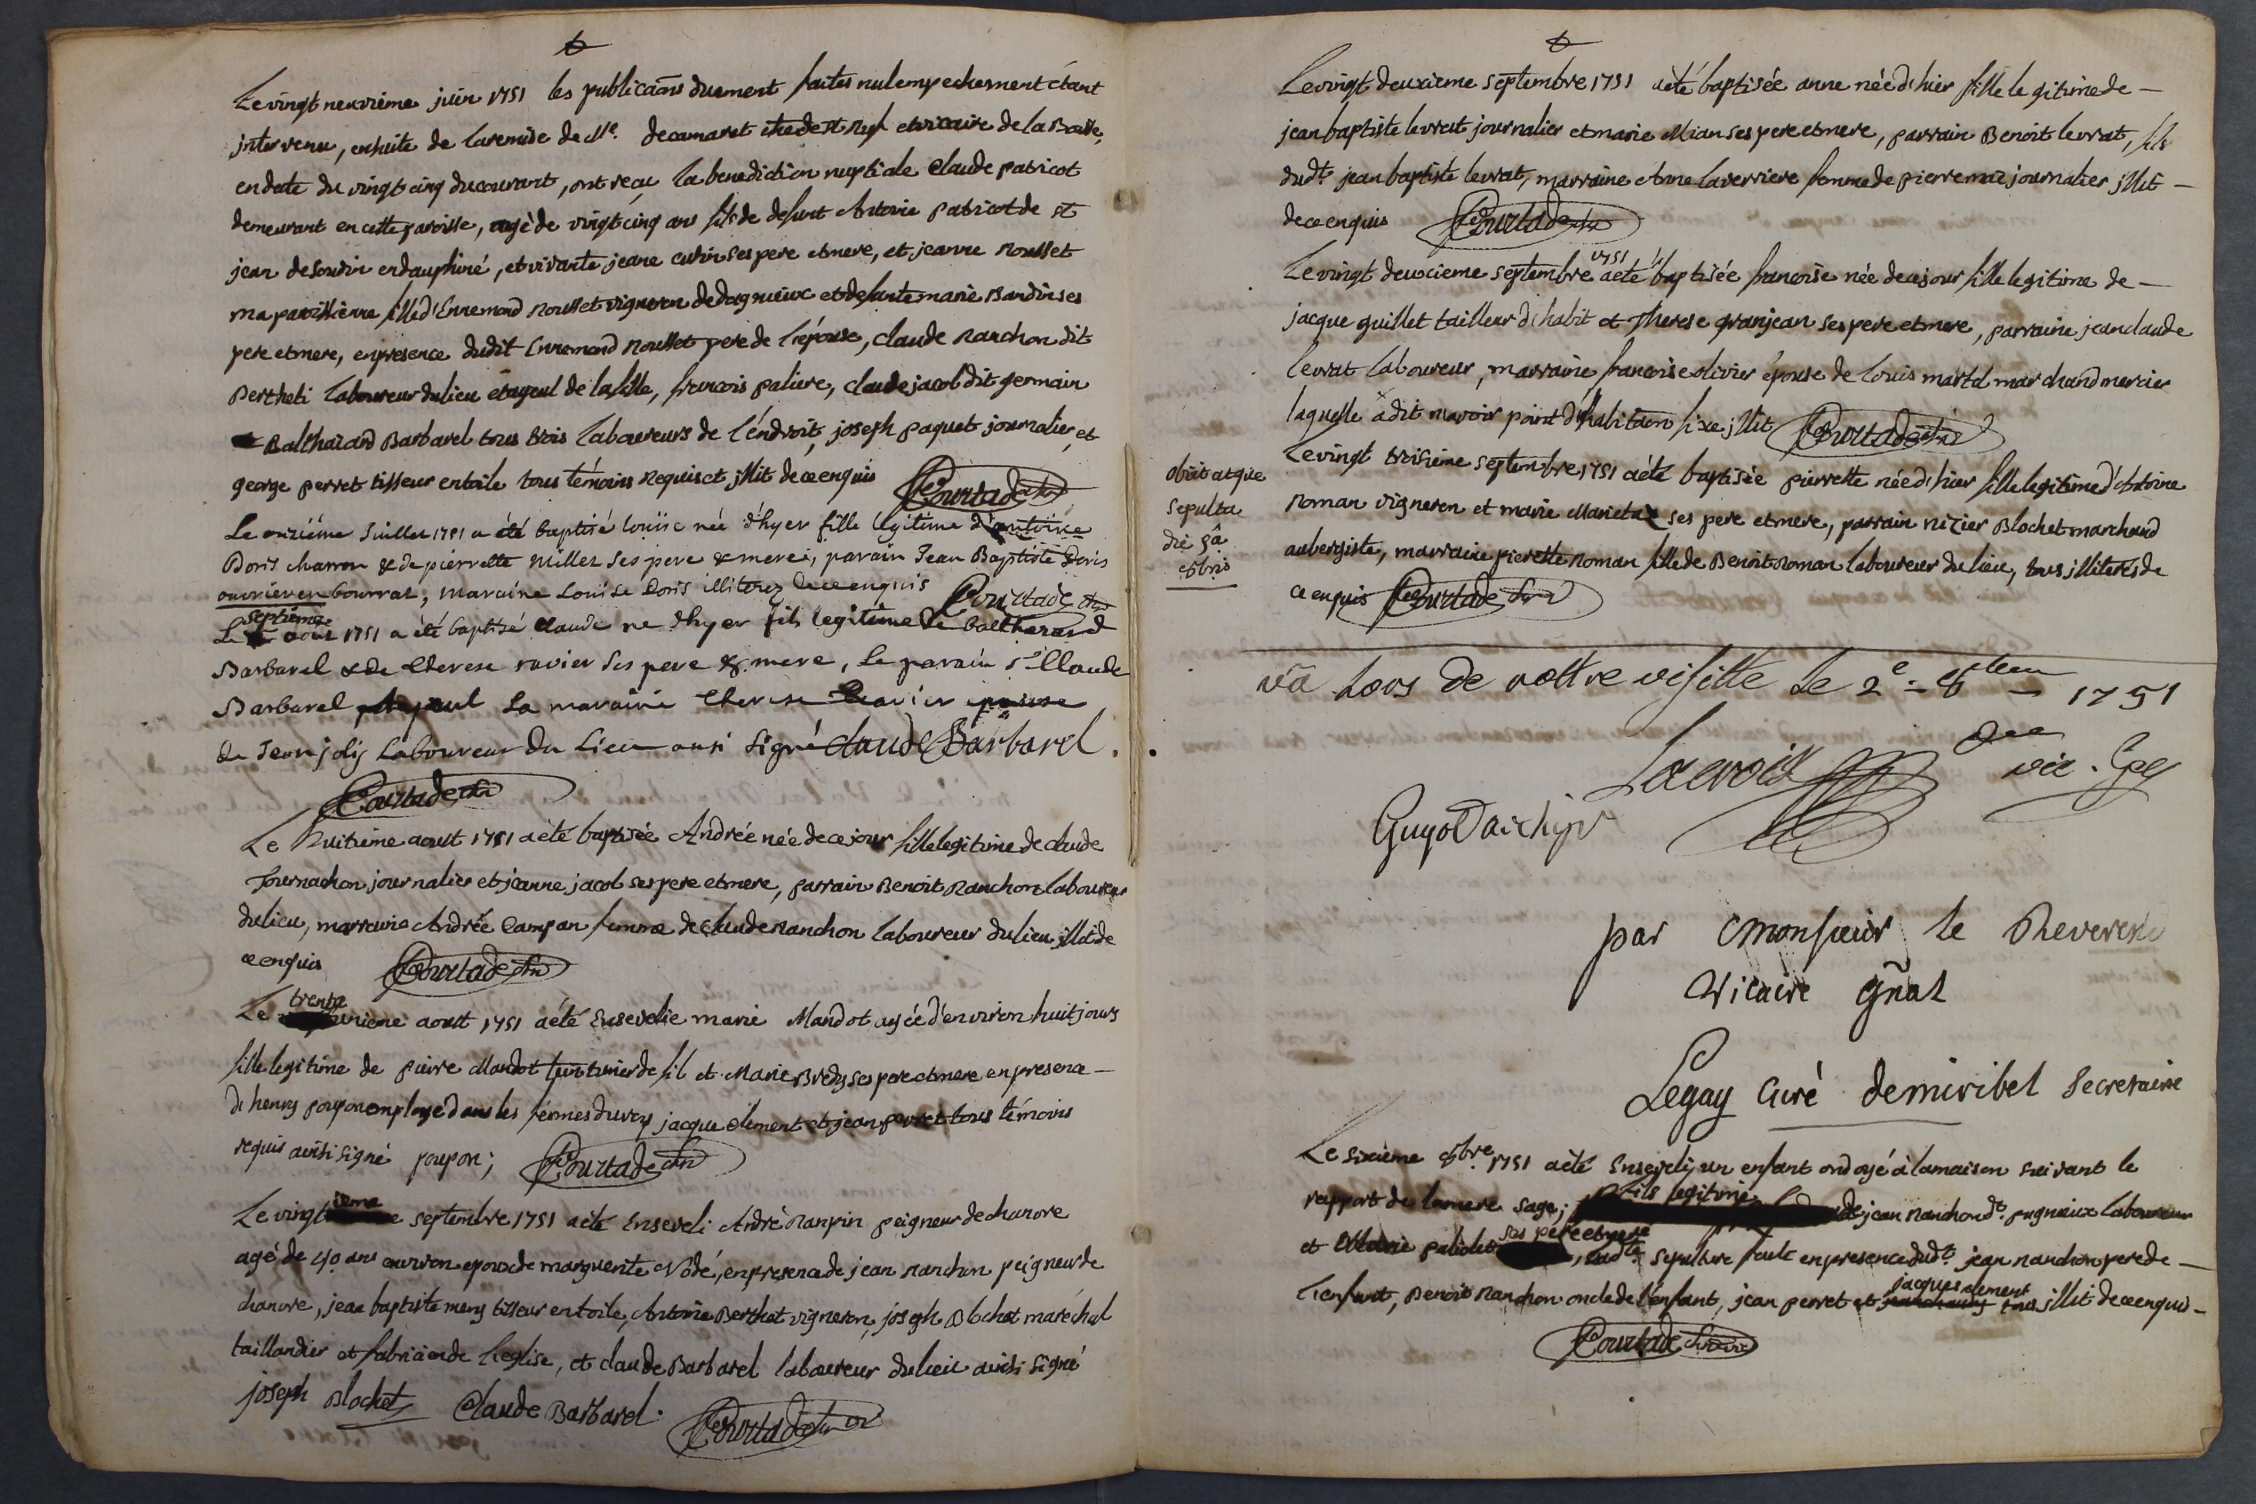 Le vingt neuvième juin 1751 les publicaōns duement faites nul empechement étant
intervenu, ensuite de la remise de Mre. decamaret et vicaire de la Boisse,
en date du vingt cinq du courant, ont reçu la benediction nuptiale Claude patricot
demeurant en cette paroisse, agé de vingt cinq ans fils de defunt Antoine patricot de st
jean de Soudin en dauphiné, et vivante jeane cutin ses pere et mere, et jeanne Rousset
ma paroissienne fille d'Ennemond Rousset vigneron de dagnieux et defunte marie Bandin ses
pere et mere, en presence dudit Ennemond Rousset pere de l'épouse, Claude Nanchon dit
Bertheti laboureur du lieu et ayeul de la fille, francois paliere, claude jacol dit germain
Balthazard Barbarel tous trois laboureurs de l'éndroit, joseph paquet journalier, et
george perret tisseur en toile tous témoins requis et jllit. de ce enquis Courtade
Le onziéme Juillet 1751 a été baptisé louise née d'hyer fille legitime d'antoine
Doris charron & de pierrette millet ses pere & mere, parain Jean Baptiste Doris
ouvrier en bourrat, maraine Louise Doris illiterez de ce enquis Courtade
septieme
Le aout 1751 a été baptisé claude né d'hyer fils legitime de balthazard
Barbarel & de therese ravier ses pere & mere, le parain sr. Claude
Barbarel la maraine therese Ravier epouse
de Jean joly laboureur du lieu ausi signé claude Barbarel.
Courtade
Le huitieme aoust 1751 a èté baptisée Andrée née de ce jour fille legitime de claude
Tournachon journalier et jeanne jacol ses pere et mere, parrain Benoit Nanchon laboureur
du lieu, marraine Andrée Campan femme de claude Nanchon laboureur du lieu jllit. de
ce enquis Courtade
trente
Le unieme aoust 1751 a èté Ensevelie marie Mandot agée d'environ huit jours
fille legitime de pierre Mandot de fil et Marie Bredy ses pere et mere en presence
d'henry poupon employé dans les fermes du roy jacque clement et jean perret tous témoins
requis ainsi signé poupon; Courtade
ieme
Le vingt septembre 1751 a èté Enseveli André Nanpin peigneur de chanvre
agé de 40 ans environ epoux de marguerite Vodé, en presence de jean Nanchon peigneur de
chanvre, jean baptiste meny tisseur en toile, Antoine Berthet vigneron, joseph Blochet maréchal
taillandier et fabricien de l'eglise, et claude Barbarel laboureur du lieu ainsi signé
joseph Blochet Claude Barbarel. Courtade
Le vingt deuxieme septembre 1751 a èté baptisée anne née d'hier fille legitime de
jean baptiste levrat journalier et marie Mian ses pere et mere, parrain Benoit levrat, fils
dudt. jean baptiste levrat, marraine Anne laverriere femme de pierre maz journalier jllit.
de ce enquis Courtade
1751
Le vingt deuxieme septembre a été baptisée francoise née de ce jour fille legitime de
jacque guillet tailleur d'habit et Therese granjean ses pere et mere, parraine jean claude
levrat laboureur, marraine francoise olivier épouse de louis martel marchand mercier
laquelle a dit n'avoir point d'habitaōn fixe jllit. Courtade
Le vingt troisieme septembre 1751 a été baptisée pierrette née d'hier fille legitime d'Antoine
Roman vigneron et marie Marietaz ses pere et mere, parrain nizier Blochet marchand
aubergiste, marraine pierrette Roman fille de Benoit Roman laboureur du lieu, tous illiterés de
ce enquis Courtade
obiit atque
sepulta
die 5a
8bris
vû lors de nottre visitte le 2e. 8bre 1751
Lacroix vic. gnl
Guyot archipr
par Monsieur le Reverend
Vicaire gñal
Legay Curé de miribel Secretaire
Le sixieme 8bre. 1751 a èté Enseveli un enfant ondoyé à la maison suivant le
fils legitime
rapport de la mere sage; de jean Nanchon dt. pugnieux laboureur
ses pere et mere
et Marie paliodet, ladte. sepulture faite en presence dudt. jean nanchon pere de
jacques clement
l'enfant, Benoit Nanchon oncle de l'enfant, jean perret et tous jllit. de ce enquis
Courtade